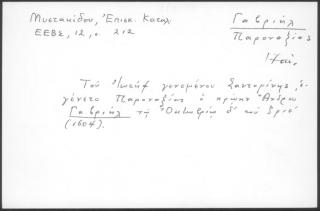 Μυστακίδου, Ἐπισκ. Κατάλ.
ΕΕΒΣ, 12, σ. 212
Γαβριήλ
Παροναξίας
Τοῦ Ἰωσήφ γενομένου Σαντορίνης, ἐ-
γένετο Παροναξίας ὁ πρώην Ἄνδρου
Γαβριήλ τῇ Ὀκτωβρίῳ
(1604).